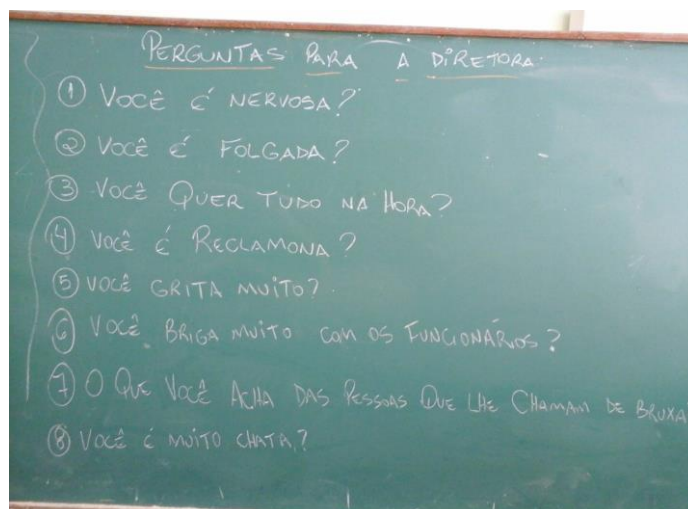 PERGUNTAS PARA A DIRETORA
① VOCÊ É NERVOSA?
② VOCÊ É FOLGADA?
③ VOCÊ QUER TUDO NA HORA?
④ VOCÊ É RECLAMONA?
⑤ VOCÊ GRITA MUITO?
⑥ VOCÊ BRIGA MUITO COM OS FUNCIONÁRIOS?
⑦ O QUE VOCÊ ACHA DAS PESSOAS QUE LHE CHAMAM DE BRUXA
⑧ VOCÊ É MUITO CHATA?